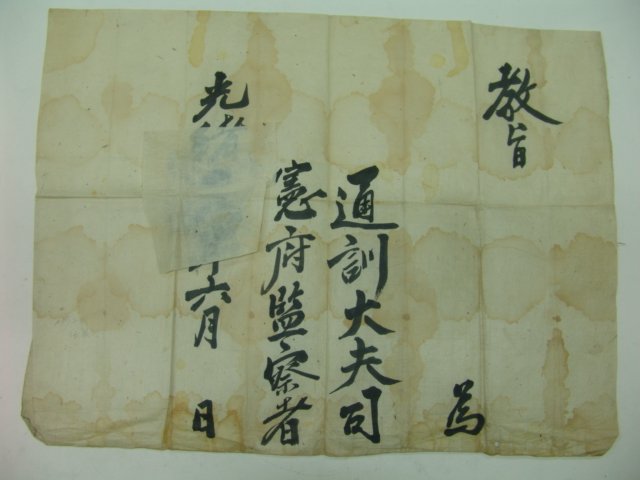 教旨
爲
通訓大夫司
憲府監察者
光緖
年六月 日